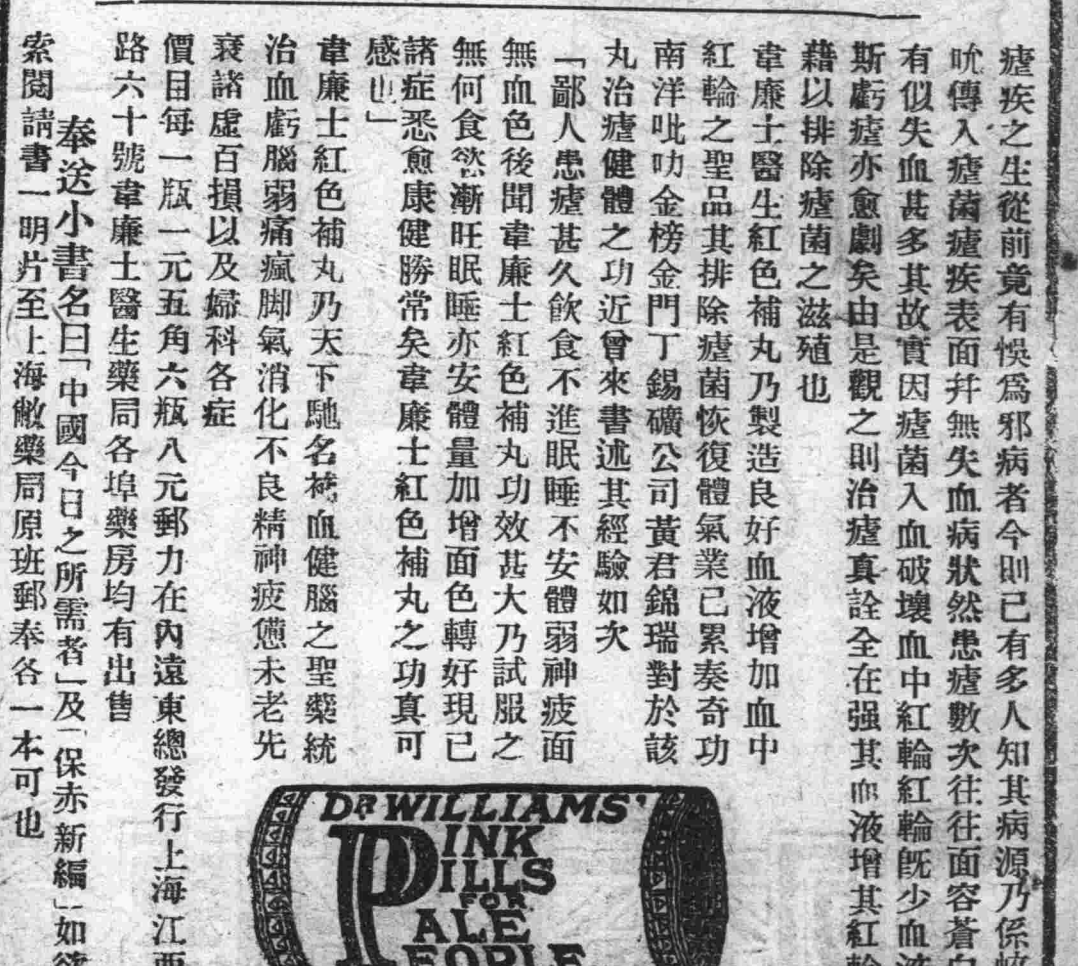 瘧疾之生從前竟有悞爲邪病者今則已有多人知其病源乃係蚊
吮傳入瘧菌瘧疾表面幷無失血病狀然患瘧數次往往面容蒼白
有似失血甚多其故實因瘧菌入血破壞血中紅輪紅輪旣少血液
斯虧瘧亦愈劇矣由是觀之則治瘧眞詮全在强其血液增其紅輪
藉以排除瘧菌之滋殖也
韋廉士醫生紅色補丸乃製造良好血液增加血中
紅輪之聖品其排除瘧菌恢復體氣業已累奏奇功
南洋吡叻金榜金門丁錫礦公司黃君錦瑞對於該
丸治瘧健體之功近曾來書述其經驗如次
「鄙人患瘧甚久飮食不進眠睡不安體弱神疲面
無血色後聞韋廉士紅色補丸功效甚大乃試服之
無何食慾漸旺眠睡亦安體量加增面色轉好現已
諸症悉愈康健勝常矣韋廉士紅色補丸之功真可
感也」
韋廉士紅色補丸乃天下馳名補血健腦之聖藥統
治血虧腦弱痛瘋脚氣消化不良精神疲憊未老先
衰諸虛百損以及婦科各症
價目每一瓶一元五角六瓶八元郵力在內遠東總發行上海江西
路六十號韋廉士醫生藥局各埠藥房均有出售
奉送小書名曰「中國今日之所需者」及「保赤新編」如欲
索閱請書一明片至上海敝藥局原班郵奉各一本可也
DR WILLIAMS'
PINK
PILLS
FOR
PALE
PEOPLE